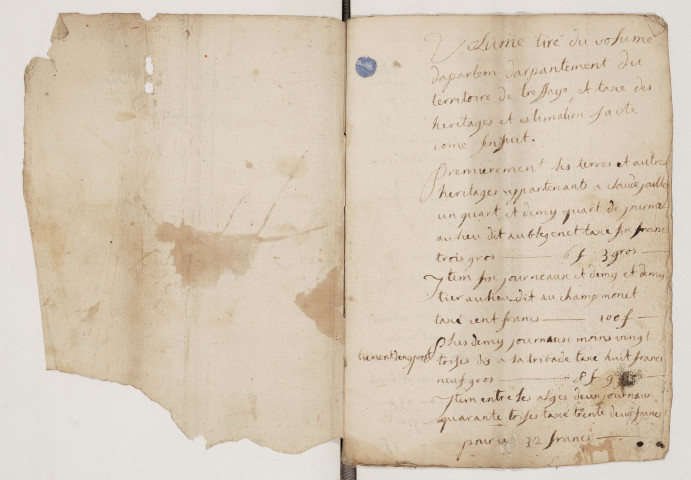 Volume tiré du volume
dapartem darpantement du
territoire de tressaye, et taxe des
heritages et estimation faicte
come sensuit.
Premierement les terres et autres
heritages appartenants a claude
un quart et demy quart de journal
au lieu dit au blegenet taxé six francs
trois gros 6 f 3 gros
Item six journeaux et demy et demy
tier au lieu dit au champ monet
taxé cent francs 100 f
Plus demy journaux moins vingt
toises dis a la tribade taxé huit francs
neuf gros 8 f 9
Item entre les alges deux journaux
quarante toises taxé trente deux francs
pour ce 32 francs